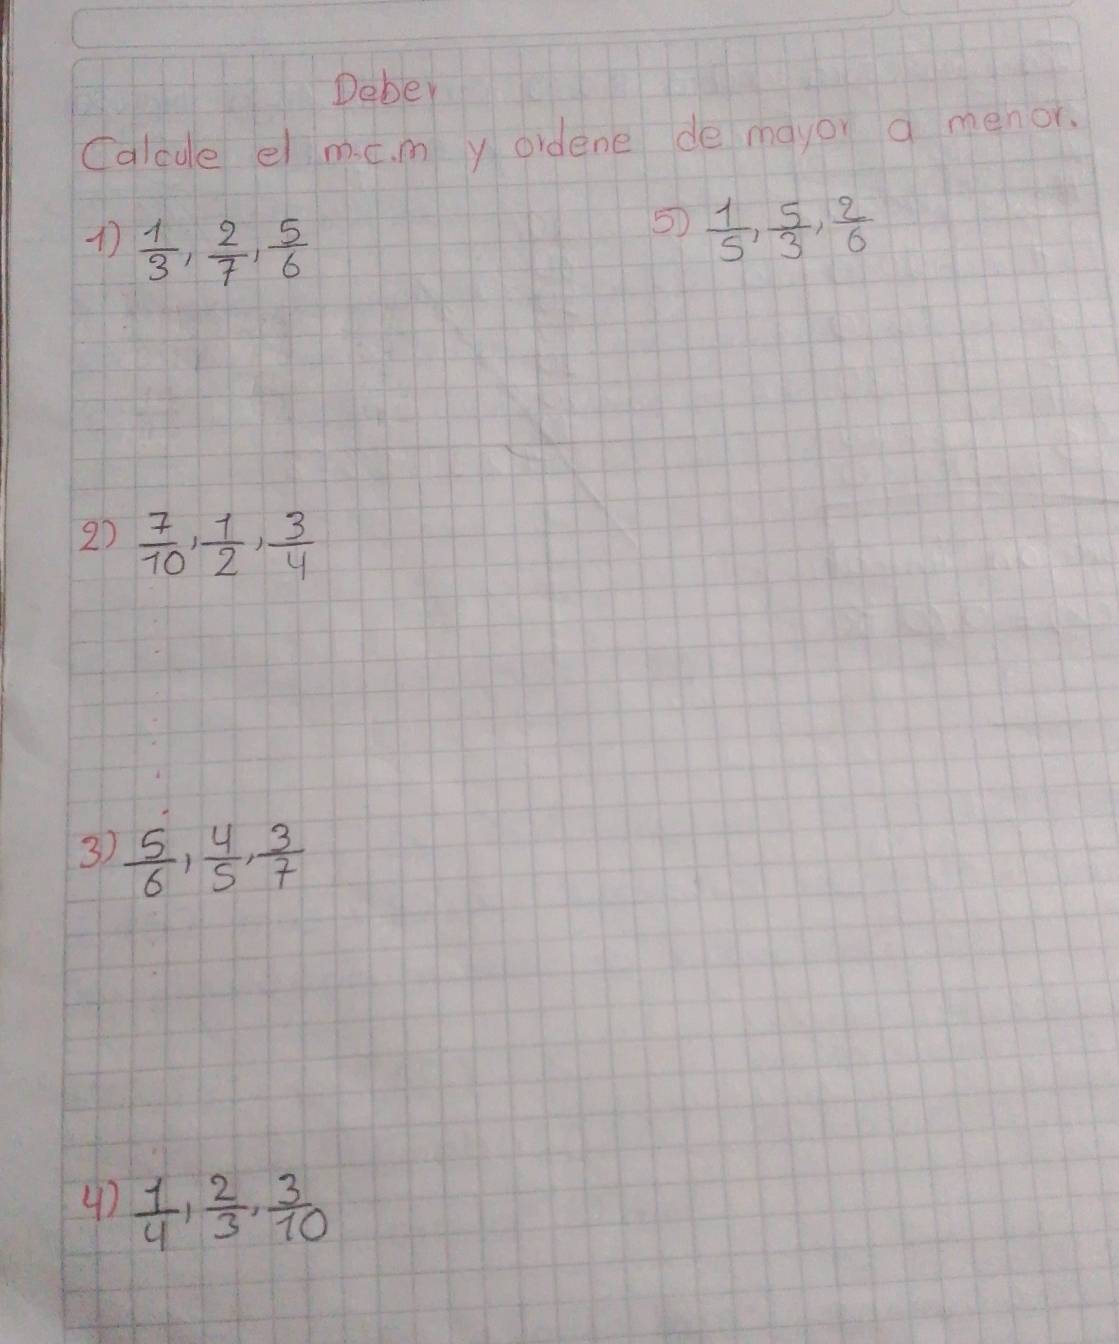 Deber
Calcule el m.c.m y ordene de mayor a menor.
1) 1/3, 2/7, 5/6
5) 1/5, 5/3, 2/6
2) 7/10, 1/2, 3/4
3) 5/6, 4/5, 3/7
4) 1/4, 2/3, 3/10